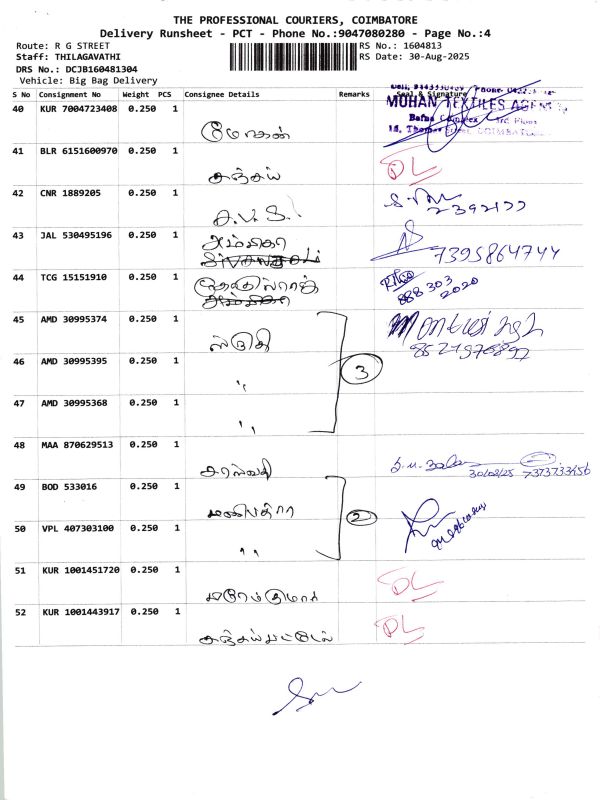 THE PROFESSIONAL COURIERS, COIMBATORE
Delivery Runsheet - PCT - Phone No.:9047080280 - Page No.:4
Route: R G STREET
RS No.: 1604813
Staff: THILAGAVATHI
RS Date: 30-Aug-2025
DRS No.: DCJB160481304
Vehicle: Big Bag Delivery
S No Consignment No Weight PCS Consignee Details Remarks Seal & Signature
MOHAN TEXTILES AGENCY
40 KUR 7004723408 0.250 1
மோகன்
41 BLR 6151600970 0.250 1
சஞ்சய் DL
42 CNR 1889205 0.250 1
43 JAL 530495196 0.250 1
அம்பிகா
7395864744
44 TCG 15151910 0.250 1
888 303
2020
45 AMD 30995374 0.250 1
ஸ்ருதி
46 AMD 30995395 0.250 1
" 3
47 AMD 30995368 0.250 1
"
48 MAA 870629513 0.250 1
சரஸ்வதி
30/08/25 7373733456
49 BOD 533016 0.250 1
மணிபத்ரா 2
50 VPL 407303100 0.250 1
"
51 KUR 1001451720 0.250 1
DL
52 KUR 1001443917 0.250 1
சஞ்சய் பட்டேல் DL